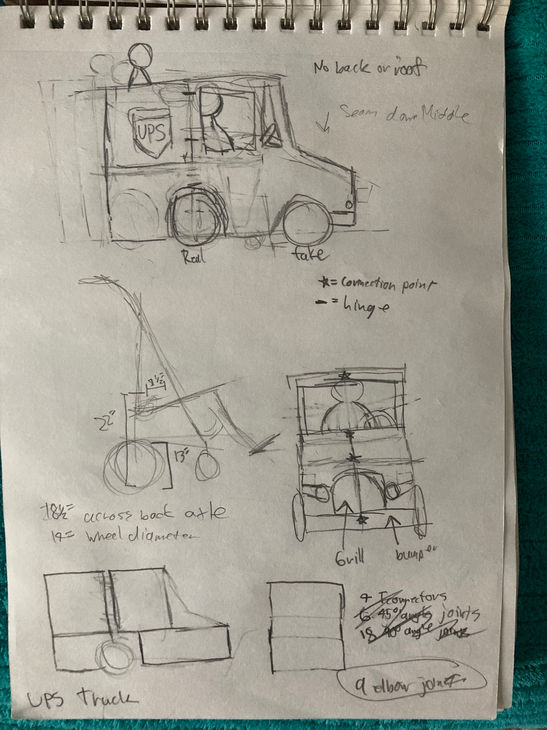 No back or roof
Seam down Middle
UPS
Real
fake
★ = connection point
- = hinge
8½"
22"
13"
18½" across back axle
12" wheel diameter
Grill
bumper
4 T connectors
6 45° angle joints
18 90° angle joints
9 elbow joints
UPS Truck